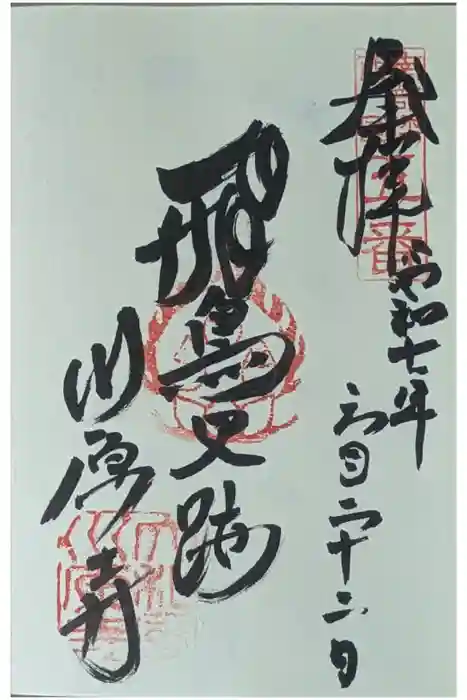 奉拝
令和七年
三月二十二日
飛鳥史跡
川原寺
五番